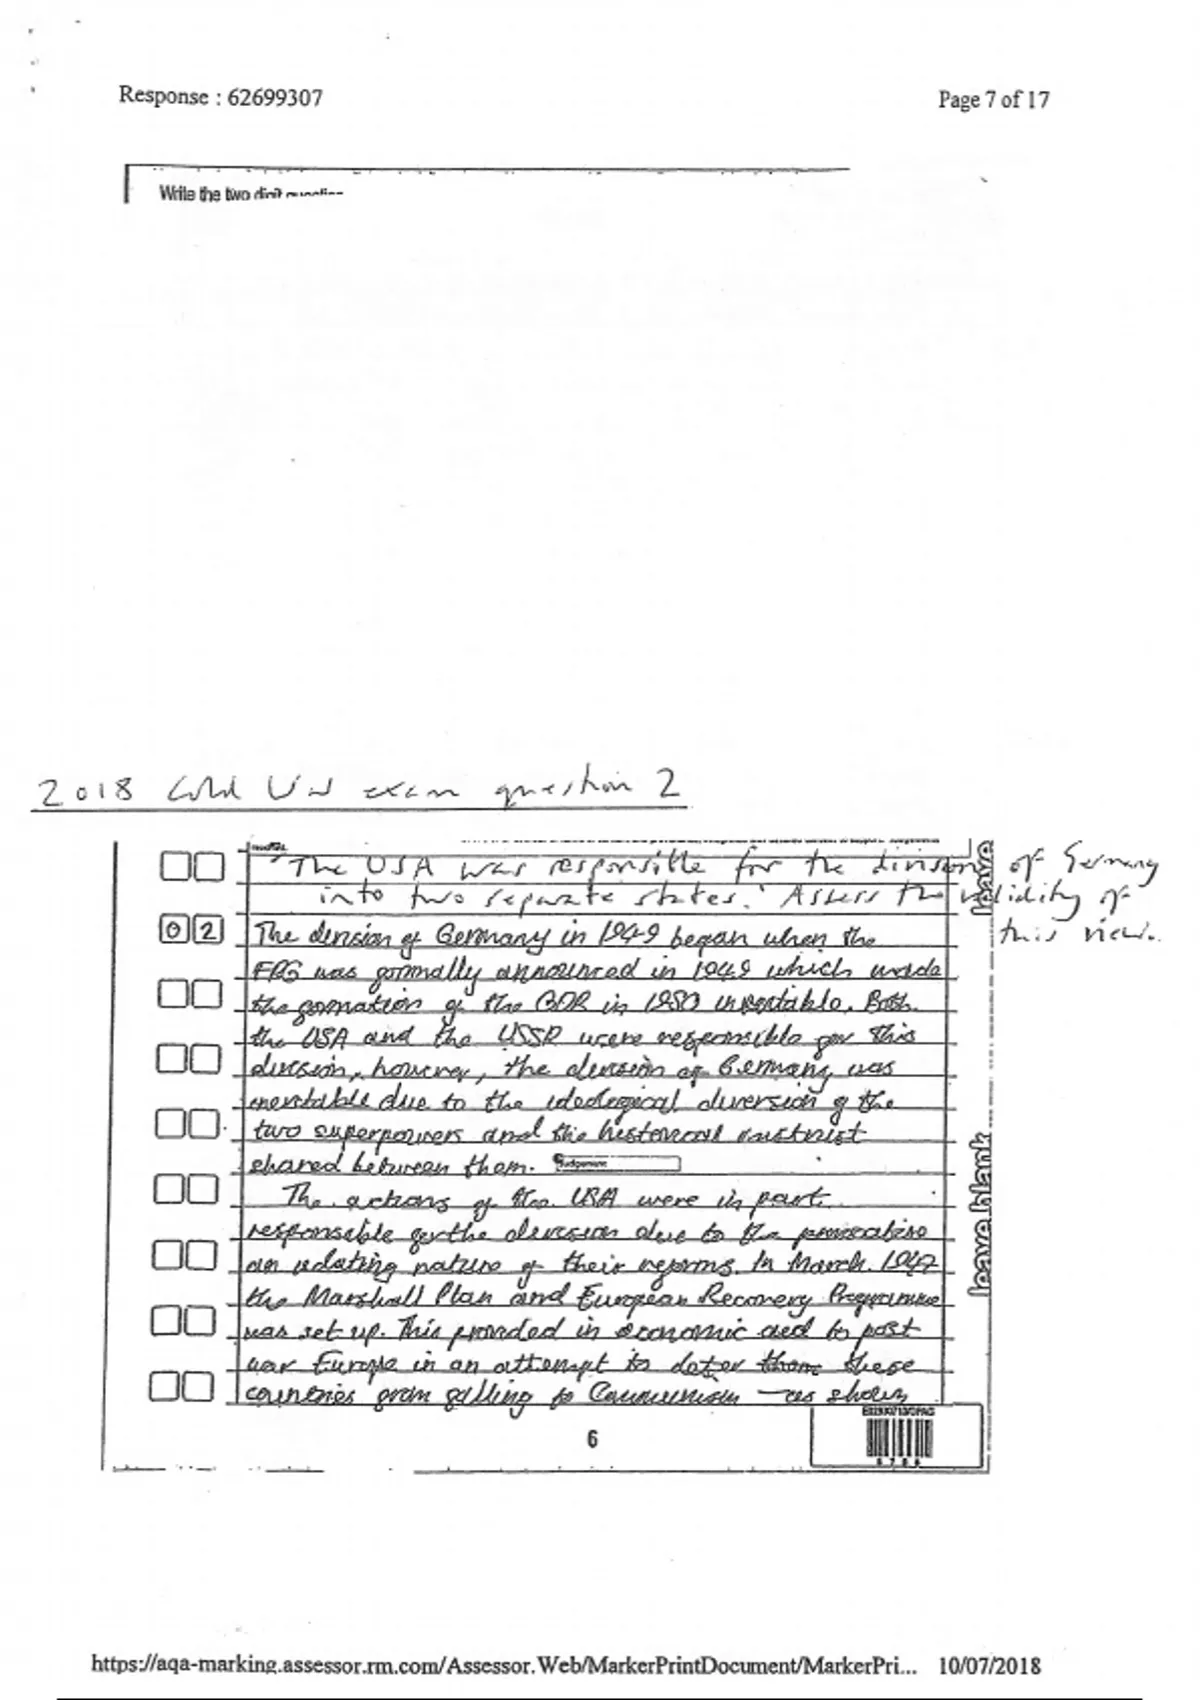 Response : 62699307
Page 7 of 17
Write the two digit question
2018 Cold War exam question 2
'The USA was responsible for the division of Germany
into two separate states.' Assess the validity of
this view.
0 2
The division of Germany in 1949 began when the
FRG was formally announced in 1949 which made
the formation of the GDR in 1950 inevitable. Both
the USA and the USSR were responsible for this
division, however, the division of Germany was
inevitable due to the ideological diversion of the
two superpowers and the historical mistrust
shared between them.
Judgement
The actions of the USA were in part
responsible for the division due to the provocative
nature of their reforms. In March 1947
the Marshall Plan and European Recovery Programme
was set up. This provided in economic aid to post
war Europe in an attempt to deter them these
countries from falling to Communism – as shown
leave
leave blank
6
https://aqa-marking.assessor.rm.com/Assessor.Web/MarkerPrintDocument/MarkerPri...
10/07/2018